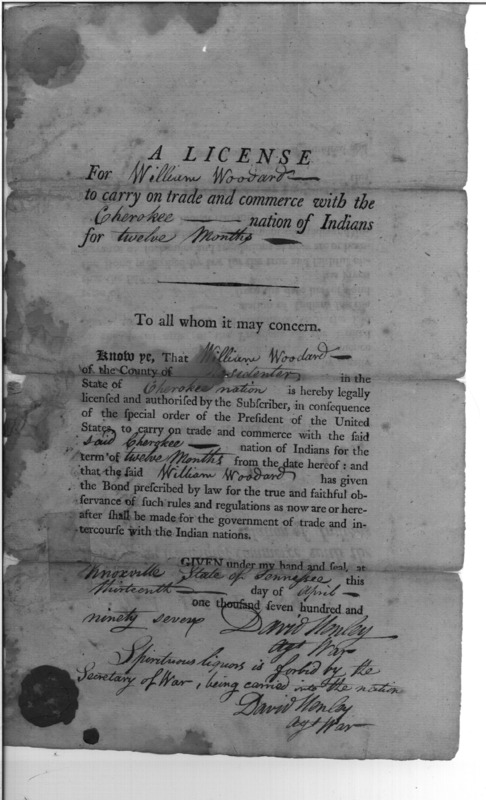 A LICENSE
For William Woodard
to carry on trade and commerce with the
Cherokee nation of Indians
for twelve Months
To all whom it may concern.
Know ye, That William Woodard
of the County of in the
State of Cherokee nation is hereby legally
licensed and authorised by the Subscriber, in consequence
of the special order of the President of the United
States, to carry on trade and commerce with the said
said Cherokee nation of Indians for the
term of twelve Months from the date hereof: and
that the said William Woodard has given
the Bond prescribed by law for the true and faithful ob-
servance of such rules and regulations as now are or here-
after shall be made for the government of trade and in-
tercourse with the Indian nations.
GIVEN under my hand and seal, at
Knoxville State of Tennessee this
thirteenth day of April
one thousand seven hundred and
ninety seven David Henley
agt War
Spirituous liquors is forbid by the
Secretary of War, being carried into the nation
David Henley
agt War